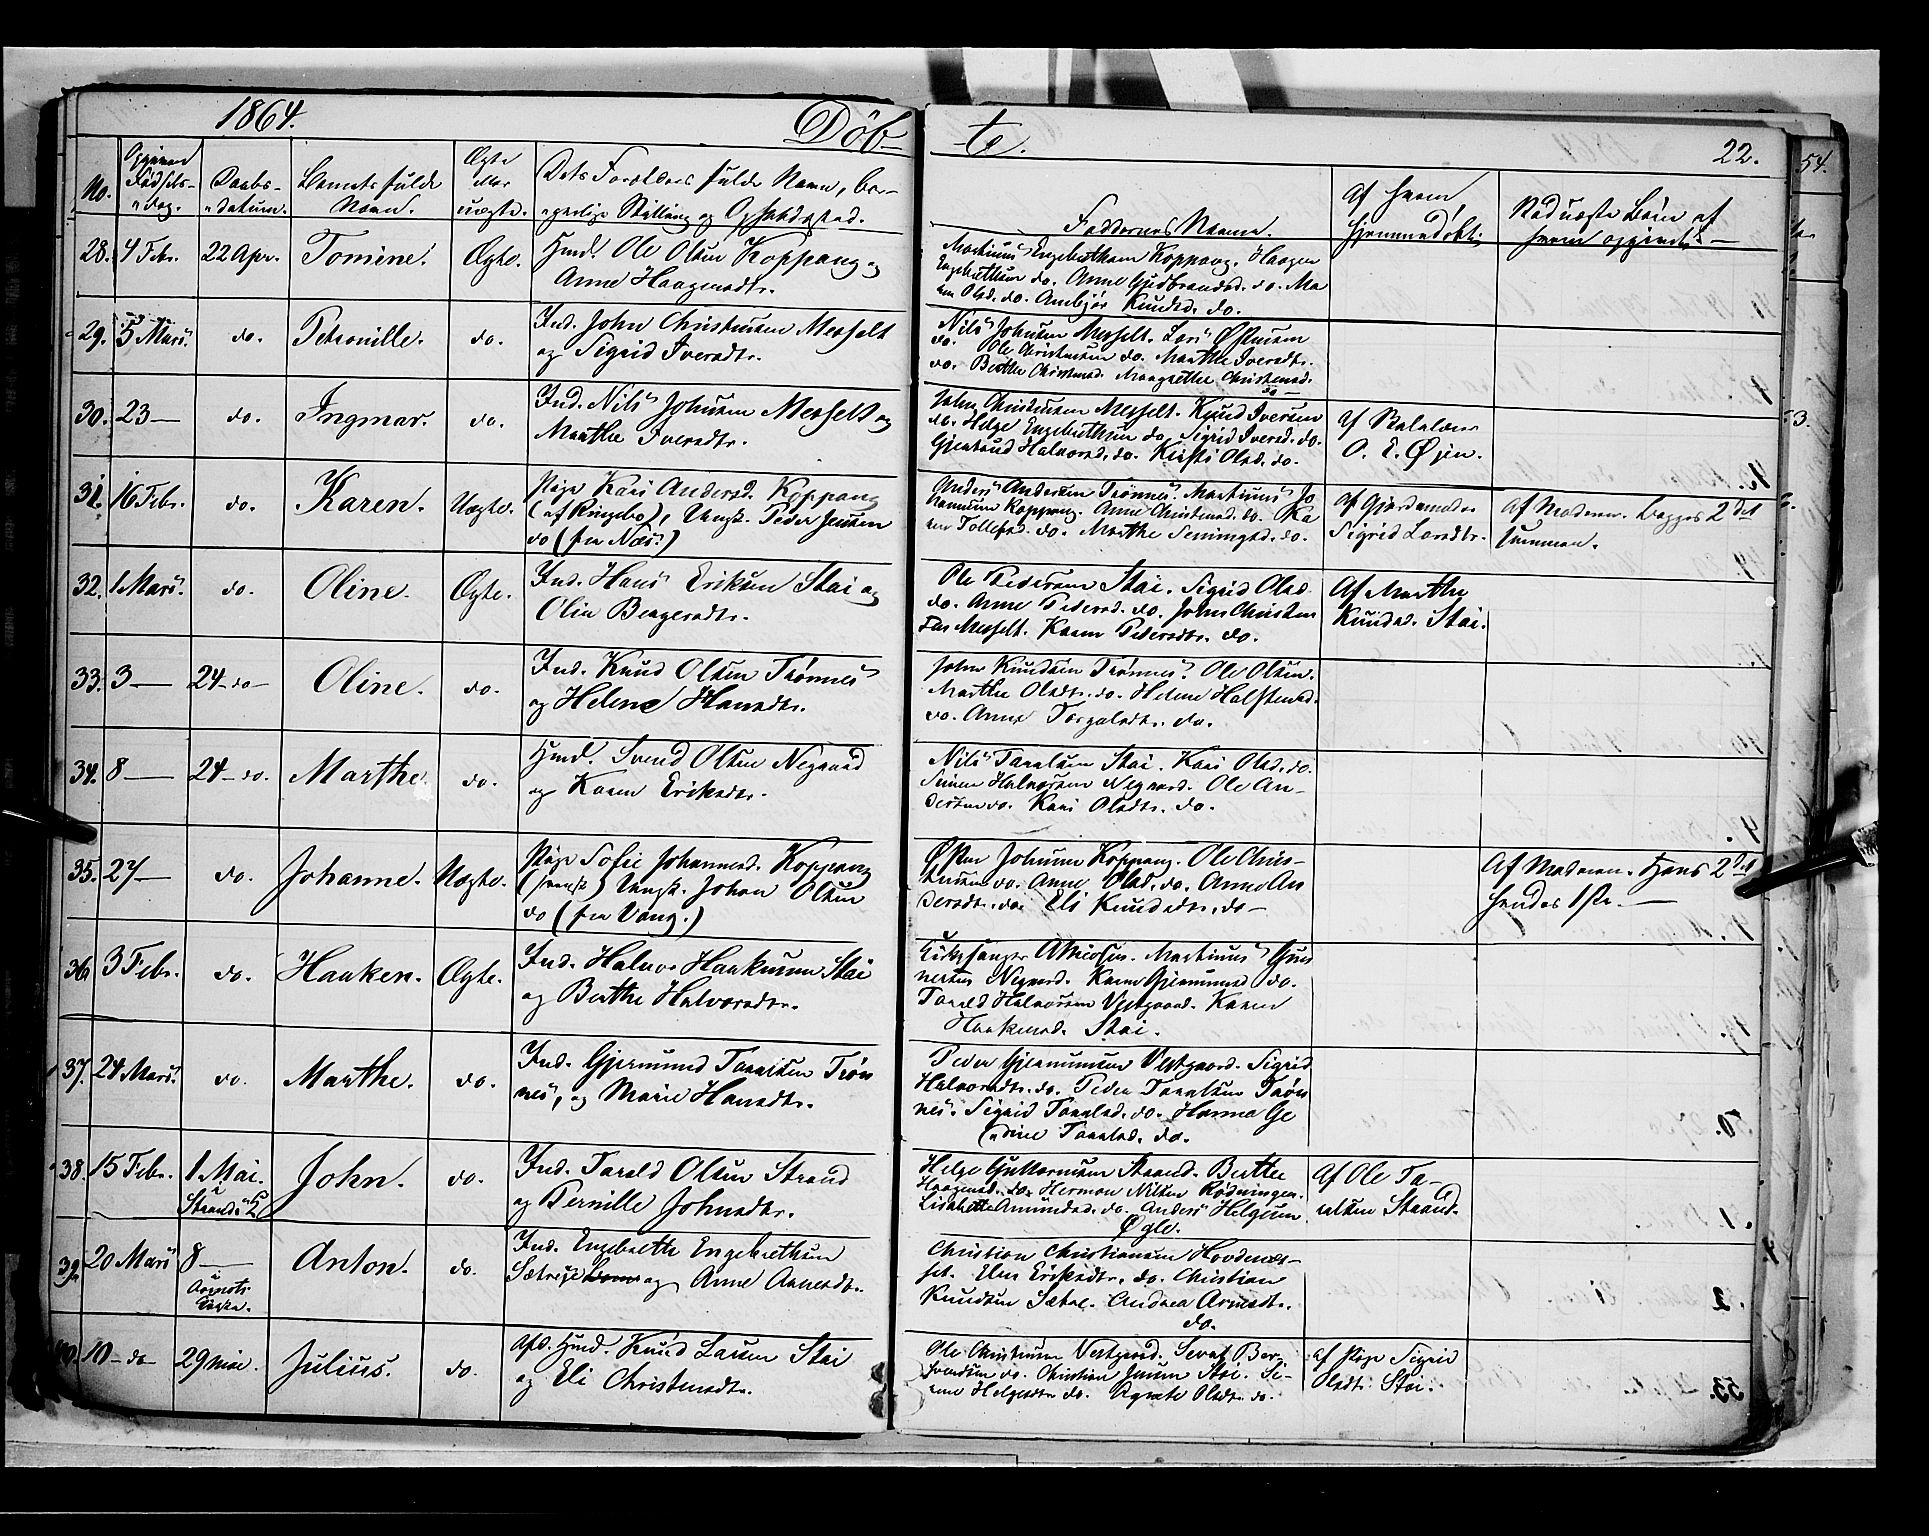 1864.
Døb-
te.
22.
54.
No.
Opgiven
Fødsels-
dag.
Daabs-
datum.
Barnets fulde
Navn.
Ægte
eller
uægte.
Dets Forældres fulde Navn, bor-
gerlige Stilling og Opholdsted.
Faddernes Navne.
Af hvem
hjemmedøbt.
Naar uægte Børn af
hvem opgivet.
28. 4 Febr. 22 Apr. Tomine. Ægte.
Hmd. Ole Olsen Koppang og
Anne Haagensdtr.
Martinus Engebrethsen Koppang. Haagen
Engebrethsen do. Anne Gudbrandsd. do. Ma
ren Olsd. do. Ambjør Knudsd. do.
29. 5 Mars. do. Petronille. do.
Ind. John Christensen Messelt
og Sigrid Iversdtr.
Nils Johnsen Messelt. Lars Østensen
do. Ole Christensen do. Marthe Iversdtr.
do. Berthe Christensd. Margrethe Christensd.
do
30. 23 — do. Ingmar. do.
Ind. Nils Johnsen Messelt og
Marthe Iversdtr.
John Christensen Messelt. Knud Iversen
do. Helge Engebrethsen do. Sigrid Iversd. do.
Gjertrud Halvorsd. do. Kirsti Olsd. do.
Af Skolelærer
O. E. Øjen.
31. 16 Febr. do. Karen. Uægte.
Pige Kari Andersd. Koppang
(af Ringebo), Ungk. Peder Jensen
do (fra Næs.)
Anders Andersen Trønnes. Martinus Jo
hannesen Koppang. Anne Christensd. do. Ka
ren Tollefsd. do. Marthe Semmingsd. do.
Af Gjordemoder
Sigrid Larsdtr.
Af Moderen. Begges 2det
sammen.
32. 1 Mars. do. Oline. Ægte.
Ind. Hans Eriksen Stai og
Olia Bergersdtr.
Ole Pedersen Stai. Sigrid Olsd.
do. Anne Pedersd. do. John Christen
sen Messelt. Karen Pedersdtr. do.
Af Marthe
Knudsd. Stai.
33. 3 — 24 - do — Oline. do.
Ind. Knud Olsen Trønnes
og Helene Hansdtr.
John Knudsen Trønnes. Ole Olsen.
Marthe Olsdtr. do. Helene Halstensd.
do. Anne Torgalsdtr. do.
34. 8 — 24 - do. Marthe. do.
Hmd. Svend Olsen Negaard
og Karen Eriksdtr.
Nils Taralsen Stai. Kari Olsd. do.
Simen Halvorsen Negaard. Ole An-
dersen do. Kari Olsdtr. do.
35. 27 — do. Johanne. Uægte.
Pige Sofie Johannesd. Koppang
(svensk) Ungk. Johan Olsen
do (fra Vang.)
Østen Johnsen Koppang. Ole Chris-
tensen do. Anne Olsd. do. Anne An
dersdtr. do. Eli Knudsdtr. do —
Af Moderen. Hans 2det
hendes 1ste. —
36. 3 Febr. do. Haaken. Ægte.
Ind. Halvor Haakensen Stai
og Berthe Halvorsdtr.
Kirkesanger A. Nielsen. Martinus Gun
nersen Negaard. Karen Gjermunsd do.
Tarald Halvorsen Vestgaard. Karen
Haakensd. Stai.
37. 24 Mars. do. Marthe. do.
Ind. Gjermund Taralsen Trøn
nes, og Marie Hansdtr.
Peder Gjermunsen Vestgaard. Sigrid
Halvorsdtr. do. Peder Taralsen Trøn
nes. Sigrid Taralsd. do. Hanna Ge
orine Taralsd. do.
38. 15 Febr. 1 Mai. John. do.
i
Strands K
Ind. Tarald Olsen Strand
og Pernille Johnsdtr.
Helge Guttormsen Strand. Berthe
Haagensd. do. Herman Nilsen Rødningen.
Lisabette Amundsd. do. Anders Helgesen
Øgle.
Af Ole Ta-
ralsen Strand.
39. 20 Mars 8 — Anton. do.
i
Atneosens
Kirke.
Ind. Engebrette Engebrethsen
Sætre og Anne Arnesdtr.
Christian Christiansen Hovdenæs-
set. Elen Eriksdtr. do. Christian
Knudsen Sætre. Andrea Arnesdtr.
do.
40. 10 - do — 29 Mai. Julius. do
Afd. Hmd. Knud Larsen Stai
og Eli Christensdtr.
Ole Christensen Vestgaard. Sevat Ber-
svendsen do. Christian Jensen Stai. Si-
rene Helgesdtr do. Agnete Olsdtr. do.
Af Pige Sigrid
Olsdtr. Stai.